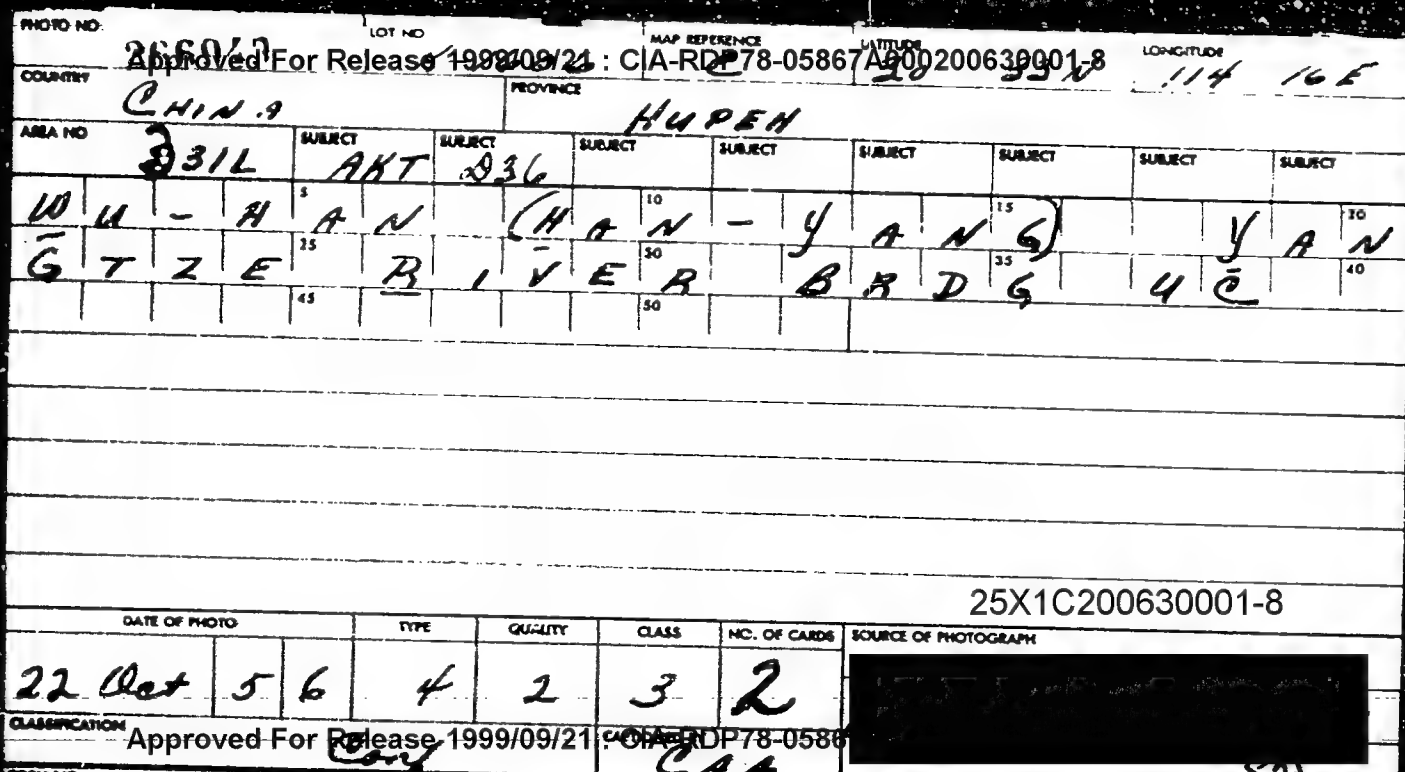 PHOTO NO. LOT NO MAP REFERENCE LATITUDE LONGITUDE
Approved For Release 1999/09/21 : CIA-RDP78-05867A000200630001-8
33 N 114 16 E
COUNTRY PROVINCE
CHINA HUPEH
AREA NO SUBJECT SUBJECT SUBJECT SUBJECT SUBJECT SUBJECT SUBJECT SUBJECT
331L AKT 936
5 10 15 20
WU-HAN (HAN-YANG) YAN
25 30 35 40
GTZE RIVER BRDG UC
45 50
25X1C200630001-8
DATE OF PHOTO TYPE QUALITY CLASS NO. OF CARDS SOURCE OF PHOTOGRAPH
22 Oct 5 6 4 2 3 2
CLASSIFICATION
Approved For Release 1999/09/21 : CIA-RDP78-0586
Conf CAA